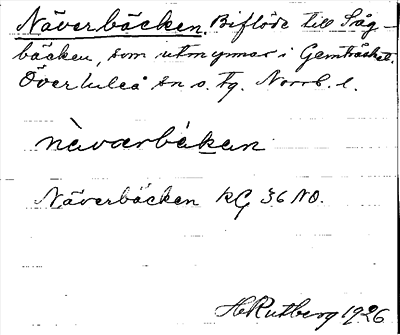 Näverbäcken. Biflöde till Såg-
bäcken, som utmynnar i Gemträsket.
Överluleå sn o. tg. Norrb. l.
nàvərbä̀kən
Näverbäcken kG 36 NO.
H Rutberg 1926